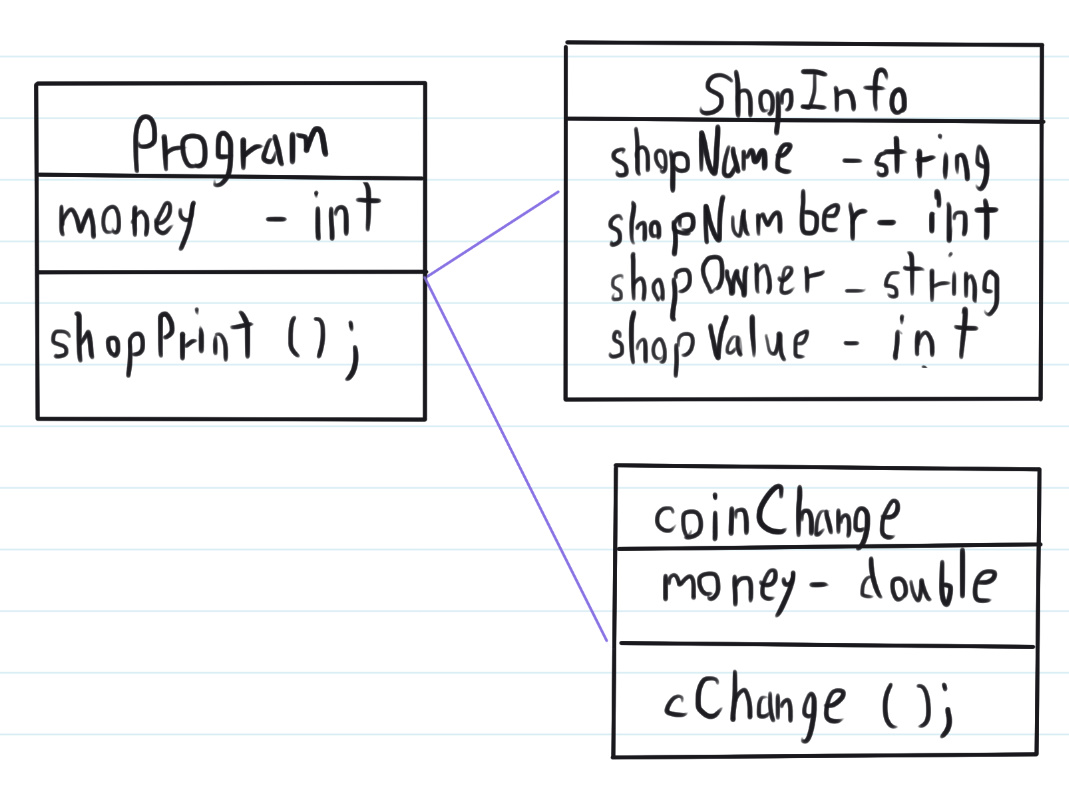 Program
money - int
shopPrint ();
ShopInfo
shopName - string
shopNumber - int
shopOwner - string
shopValue - int
coinChange
money - double
cChange ();